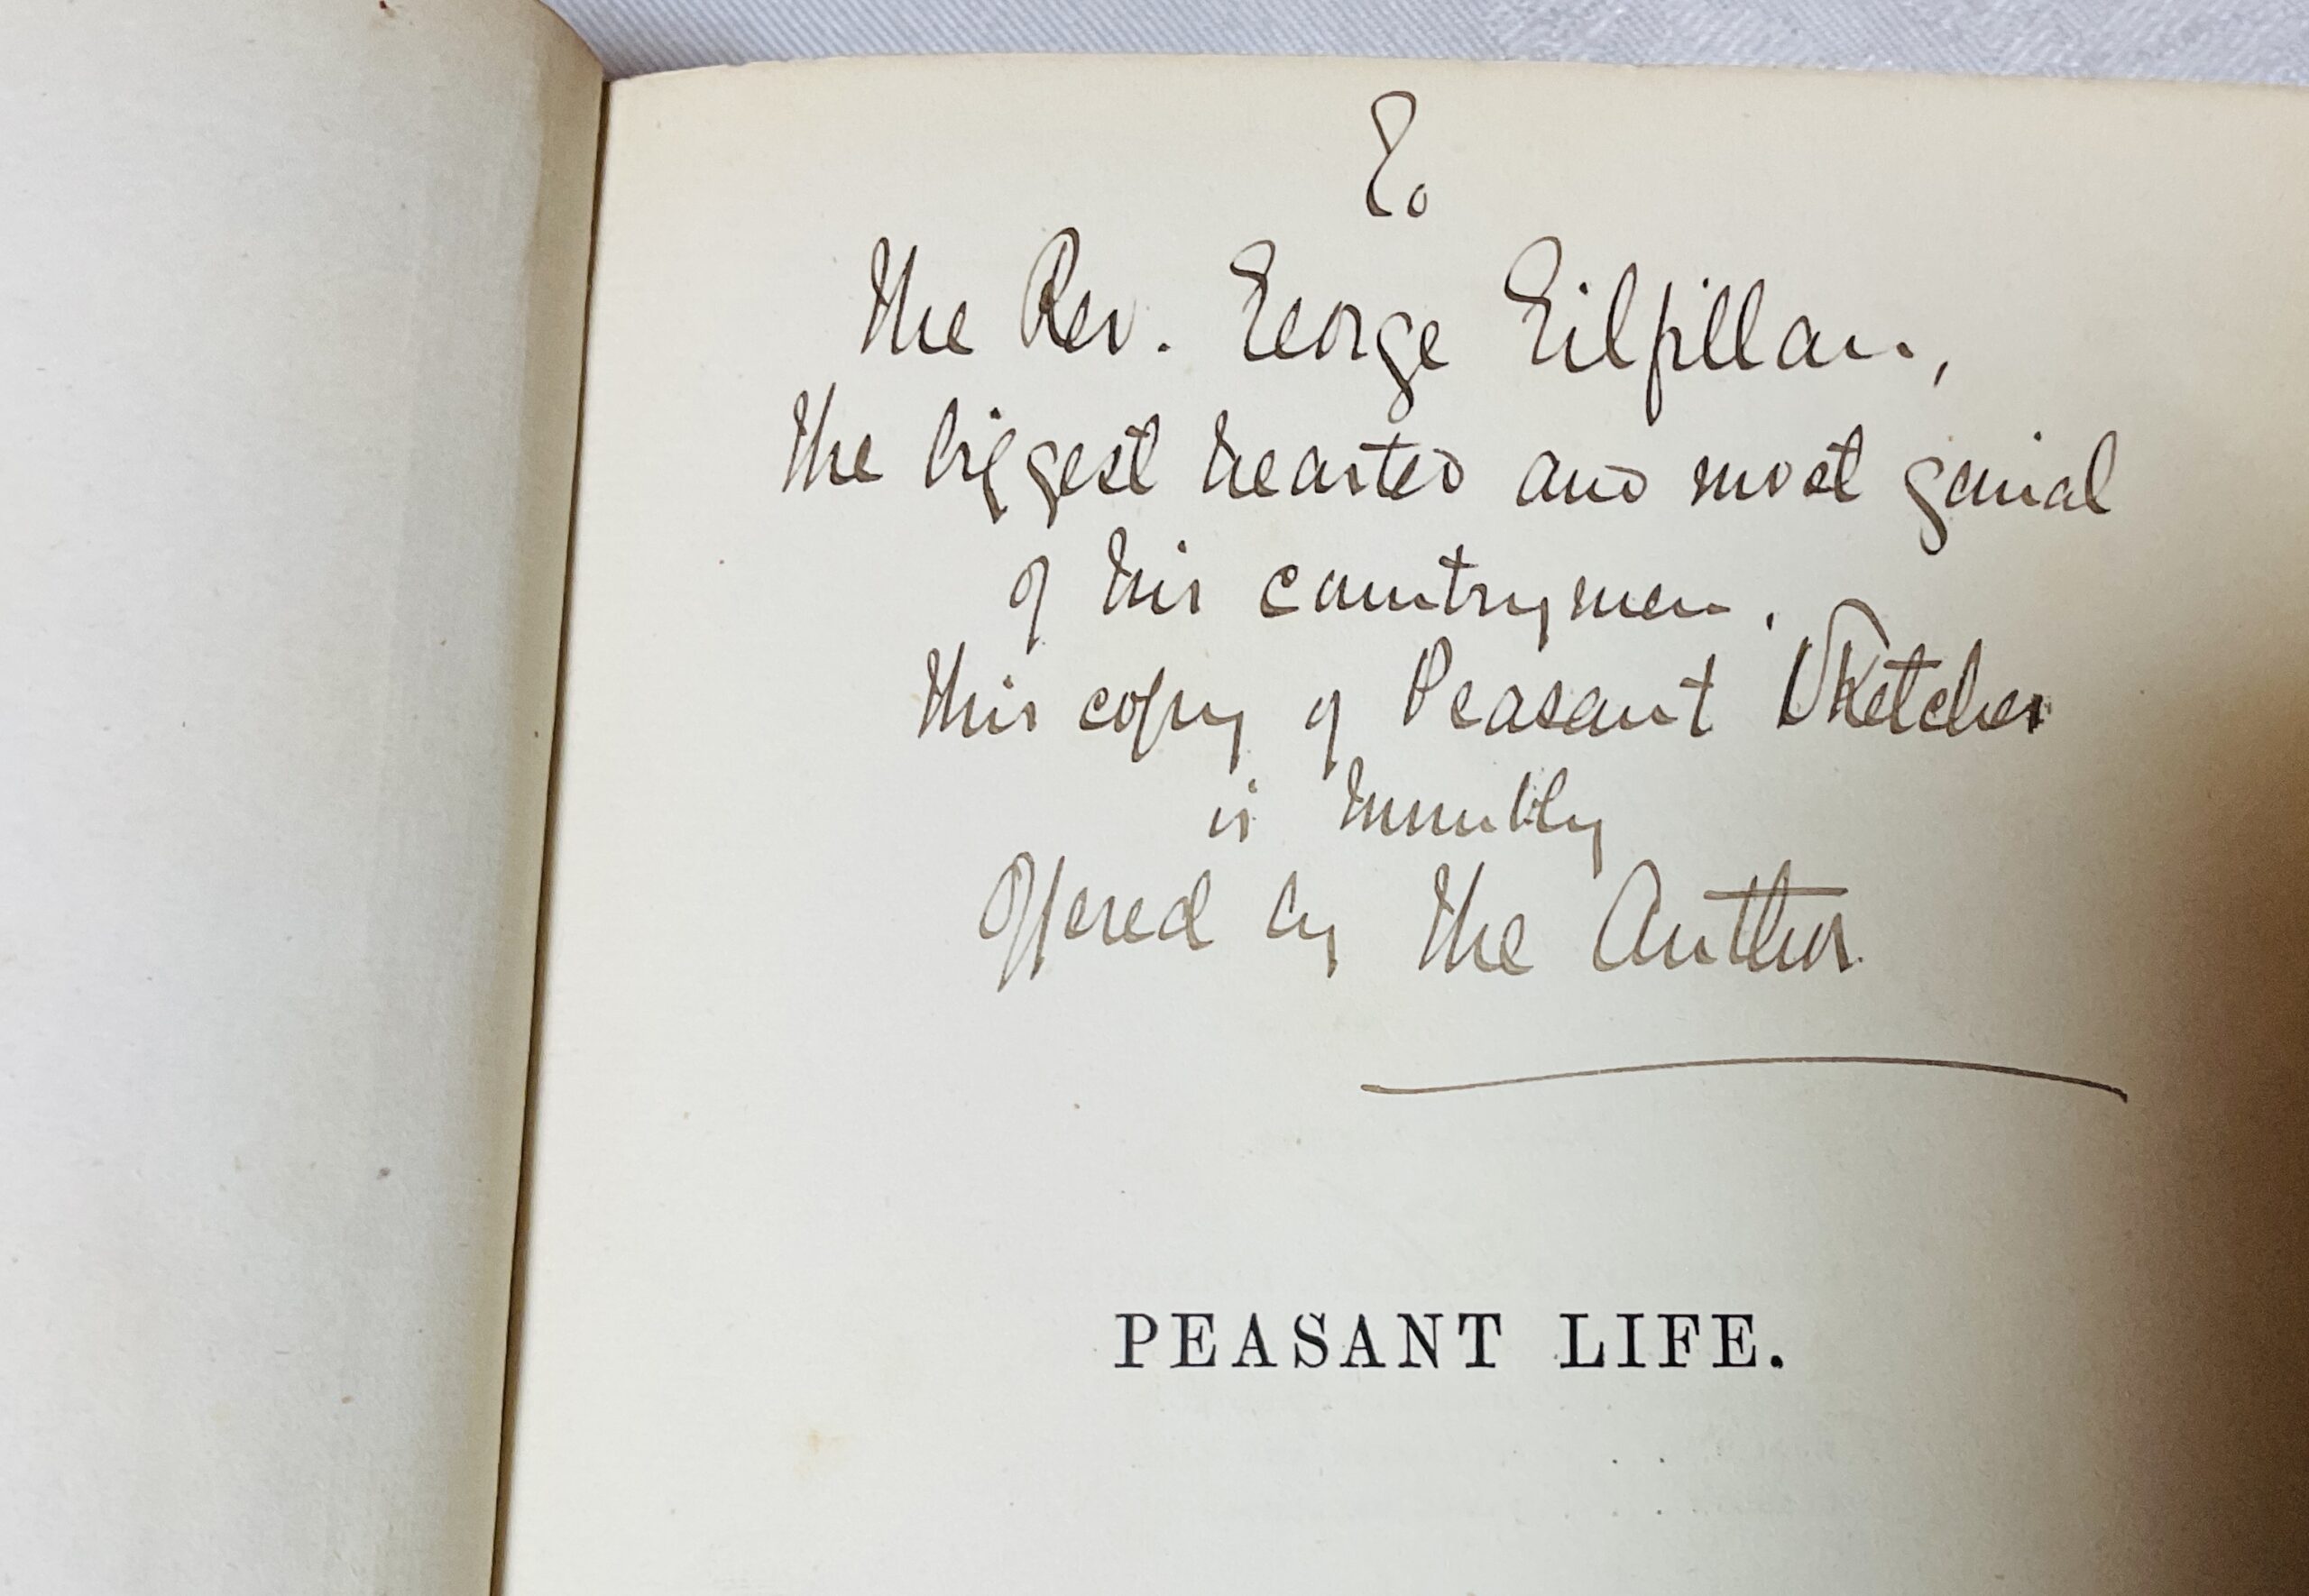 To
The Rev. George Gilfillan,
the biggest hearted and most genial
of his countrymen.
This copy of Peasant Sketches
is humbly
Offered by The Author
PEASANT LIFE.